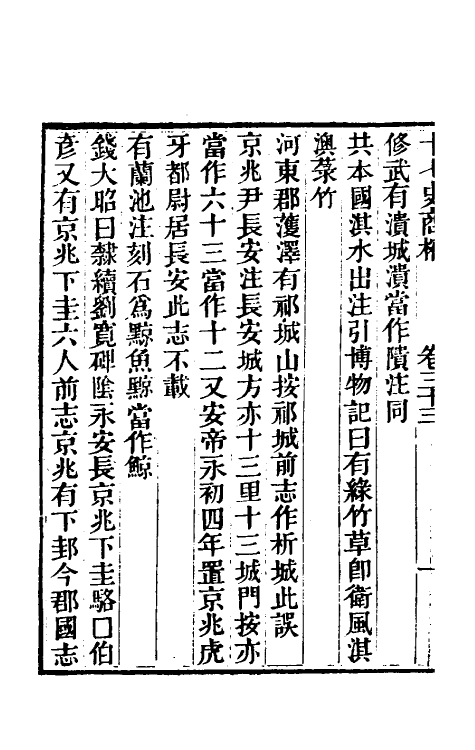 十七史商榷 卷三十三 一
修武有潰城潰當作隤注同
共本國淇水出注引博物記曰有綠竹草卽衛風淇
澳菉竹
河東郡濩澤有祁城山按祁城前志作析城此誤
京兆尹長安注長安城方亦十三里十三城門按亦
當作六十三當作十二又安帝永初四年置京兆虎
牙都尉居長安此志不載
有蘭池注刻石爲黥魚黥當作鯨
錢大昭曰隸續劉寬碑陰永安長京兆下圭駱囗伯
彦又有京兆下圭六人前志京兆有下邽今郡國志